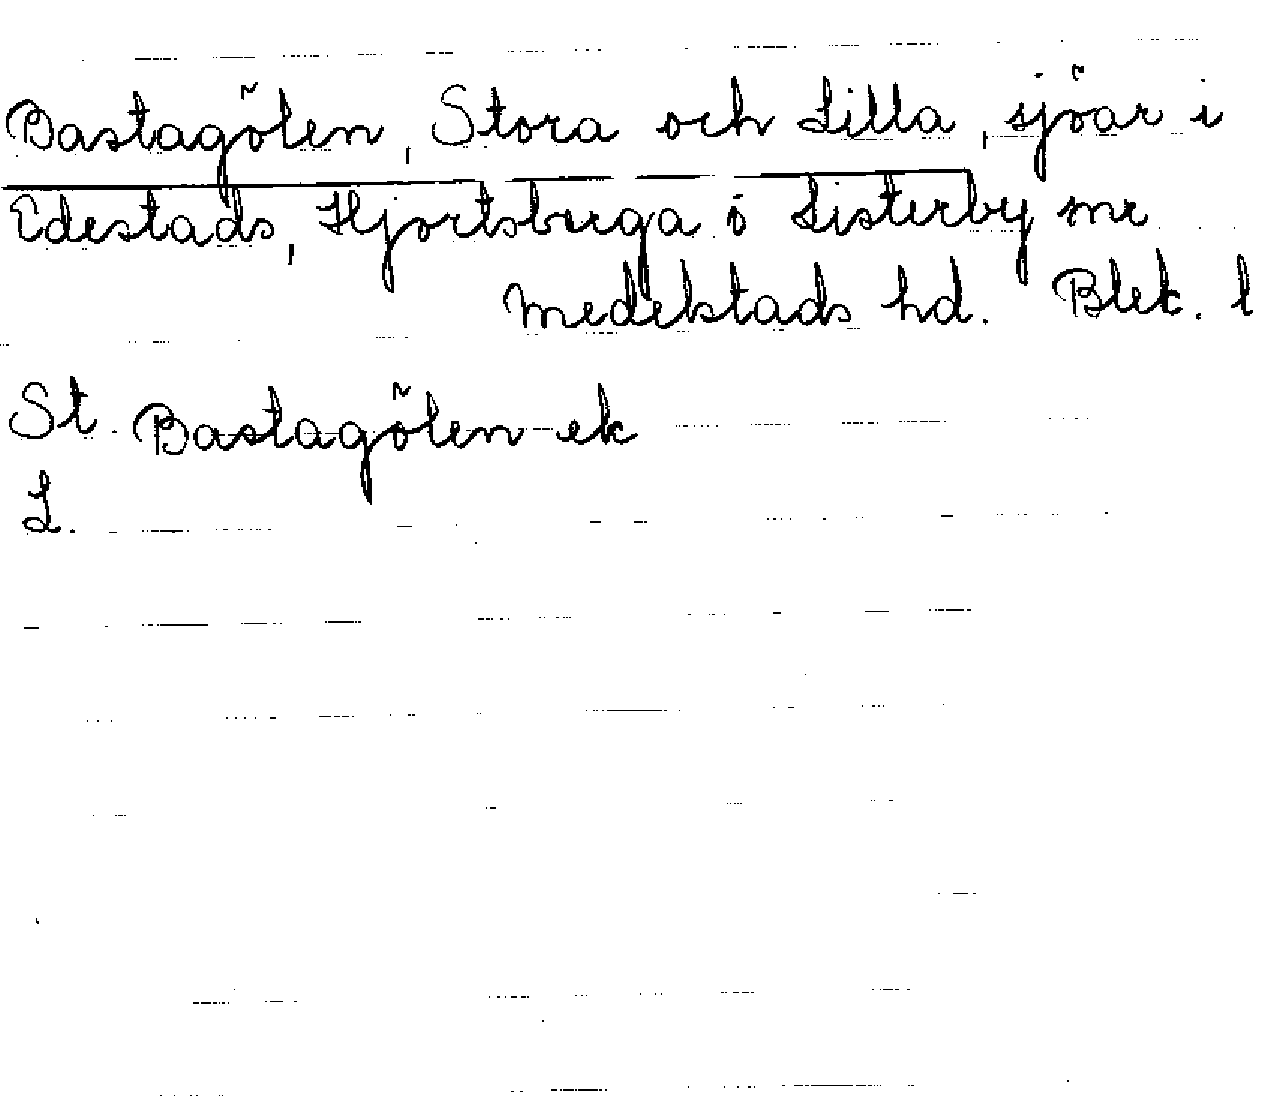 Bastagölen, Stora och Lilla, sjöar i
Edestads, Hjortsberga o Listerby snr
Medelstads hd. Blek. l
St. Bastagölen ek
L.